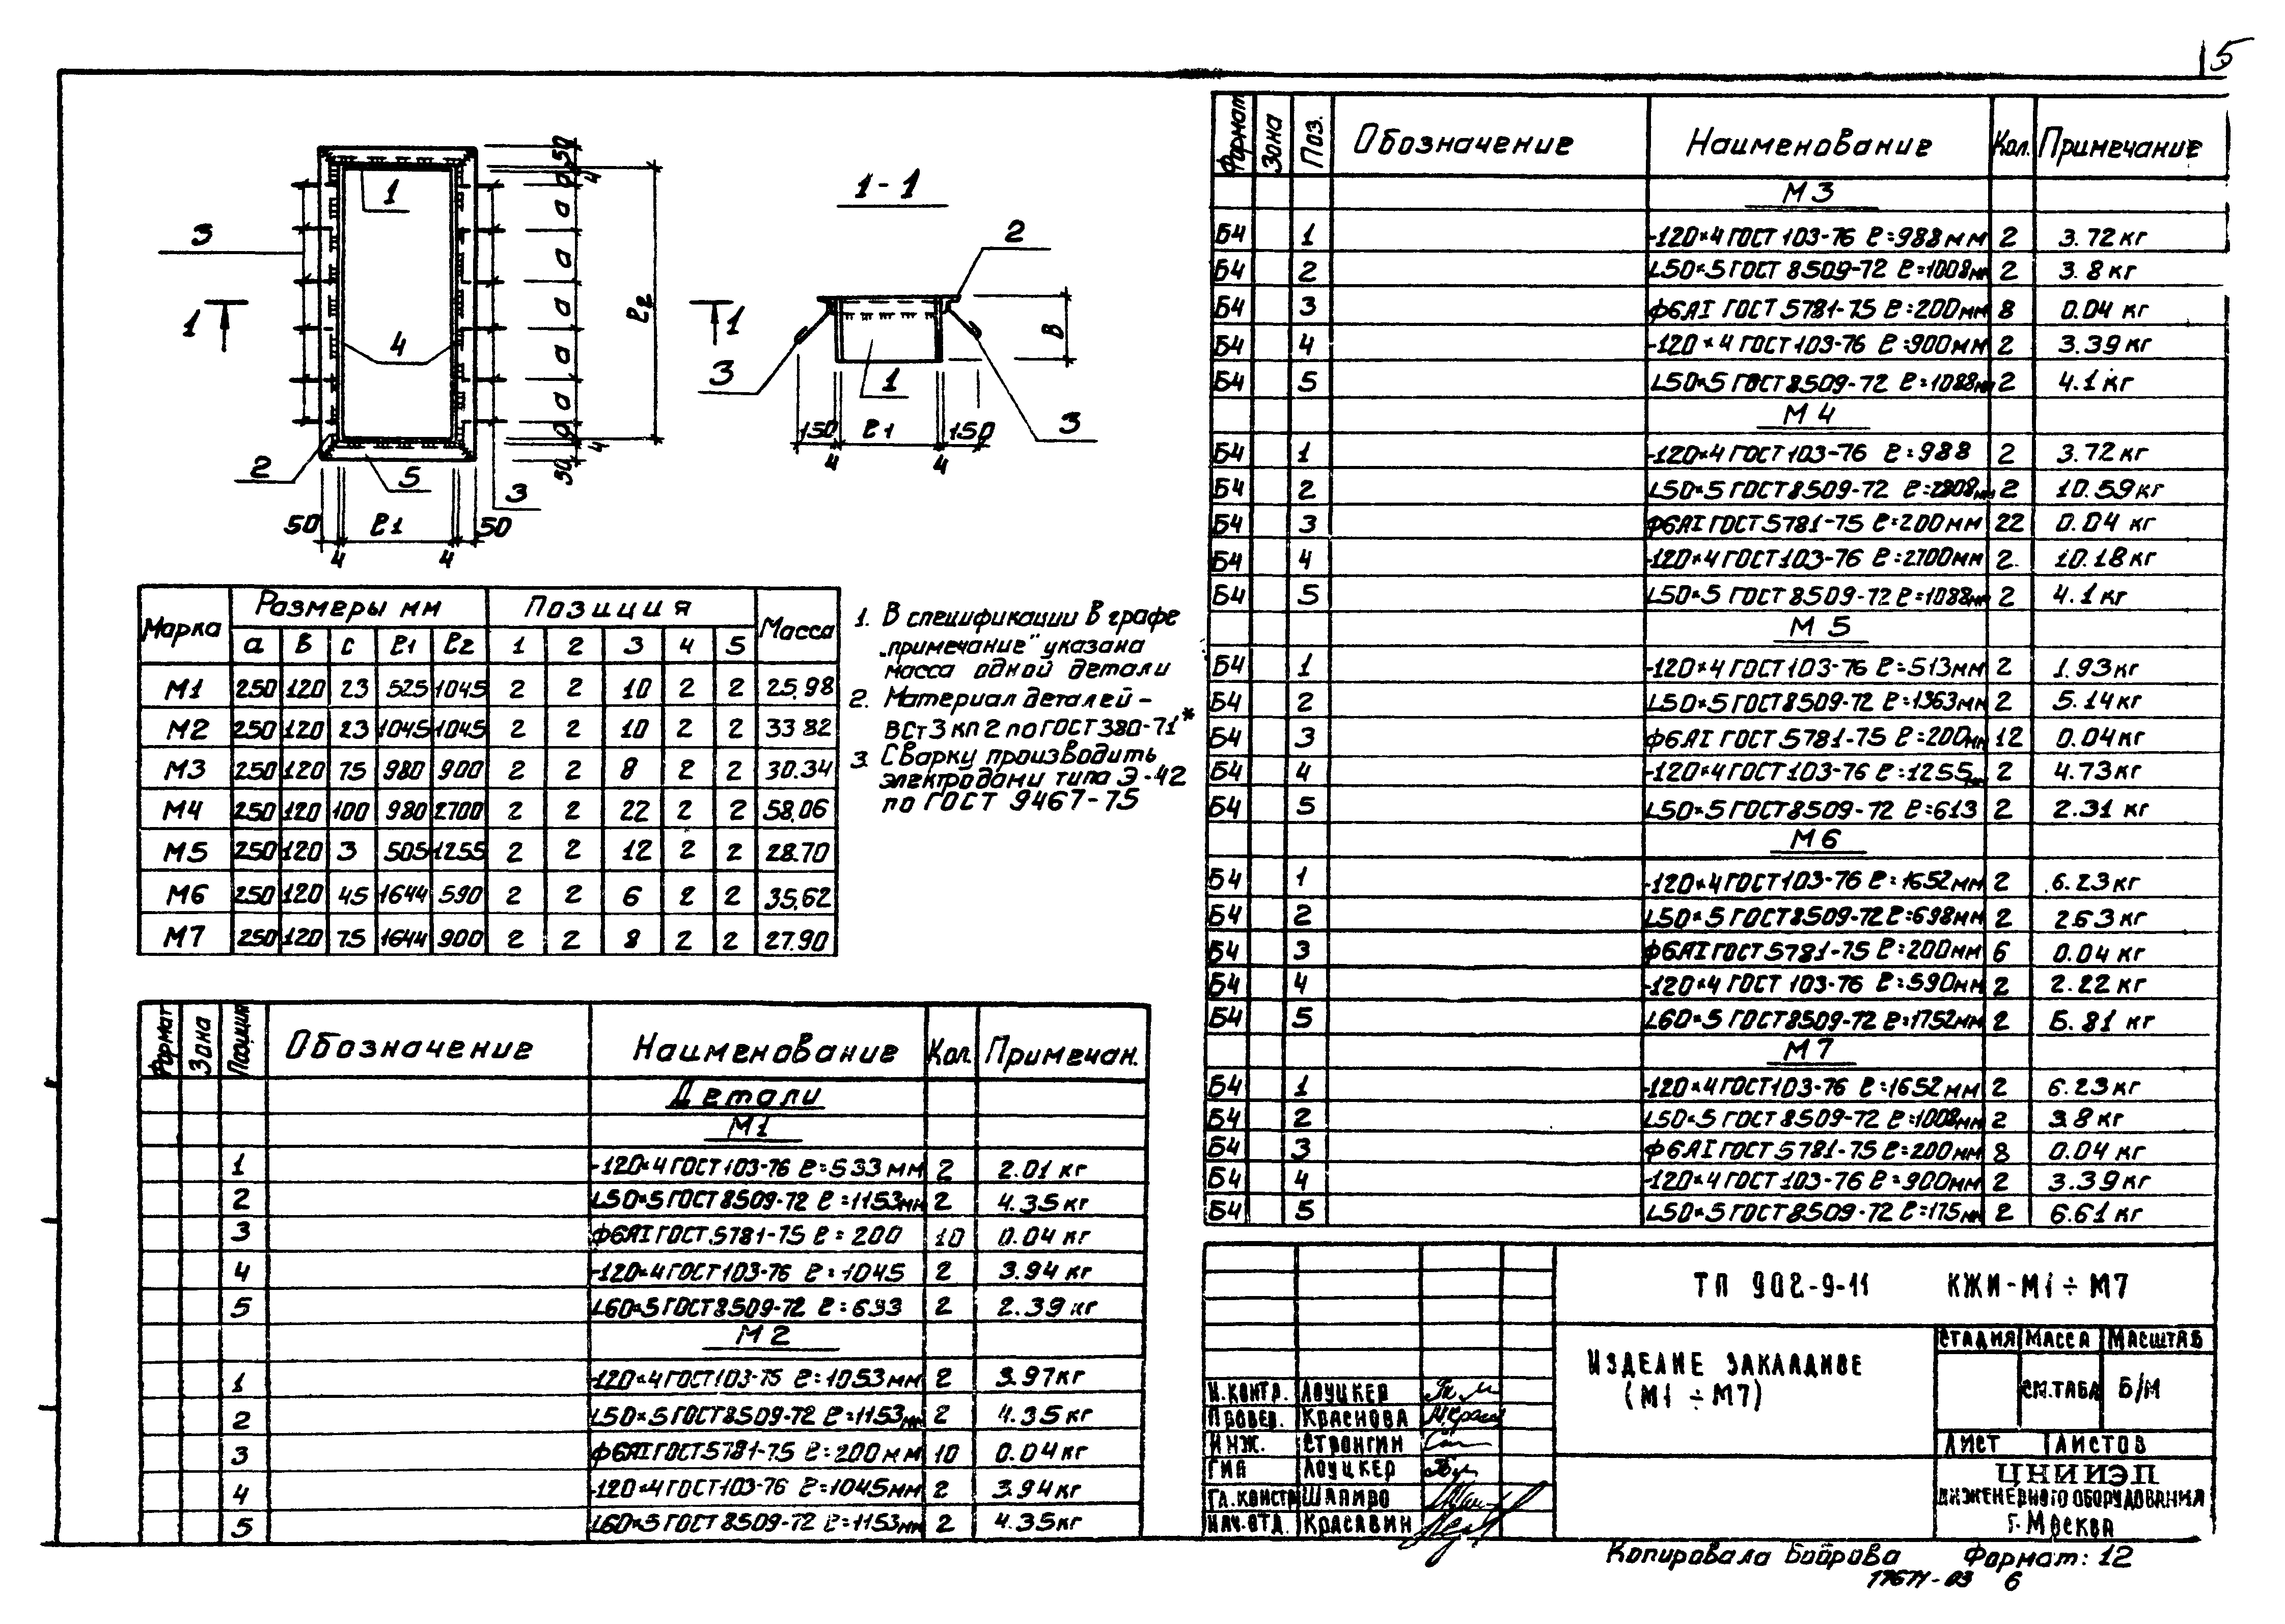 5
50
4
c
a
a
a
a
a
c
4
50
ℓ2
1
3
1
4
2
5
3
50
ℓ1
50
4
4
1-1
2
1
3
1
3
В
150
ℓ1
150
4
4
Марка
Размеры мм
Позиция
Масса
а В с ℓ1 ℓ2 1 2 3 4 5
М1 250 120 23 525 1045 2 2 10 2 2 25,98
М2 250 120 23 1045 1045 2 2 10 2 2 33 82
М3 250 120 75 980 900 2 2 8 2 2 30.34
М4 250 120 100 980 2700 2 2 22 2 2 58,06
М5 250 120 3 505 1255 2 2 12 2 2 28.70
М6 250 120 45 1644 590 2 2 6 2 2 35,62
М7 250 120 75 1644 900 2 2 8 2 2 27.90
1. В спецификации в графе
„примечание" указана
масса одной детали
2. Материал деталей –
ВСт3 кп 2 по ГОСТ 380-71*
3. Сварку производить
электродами типа Э-42
по ГОСТ 9467-75
Формат Зона Позиция Обозначение Наименование Кол. Примечан.
Детали
М1
1 -120×4 ГОСТ 103-76 ℓ=533 мм 2 2.01 кг
2 L50×5 ГОСТ 8509-72 ℓ=1153мм 2 4.35 кг
3 ф6АI ГОСТ 5781-75 ℓ=200 10 0.04 кг
4 -120×4 ГОСТ 103-76 ℓ=1045 2 3.94 кг
5 L60×5 ГОСТ 8509-72 ℓ=633 2 2.39 кг
М2
1 -120×4 ГОСТ 103-75 ℓ=1053 мм 2 3.97кг
2 L50×5 ГОСТ 8509-72 ℓ=1153мм 2 4.35 кг
3 ф6АI ГОСТ 5781-75 ℓ=200 мм 10 0.04 кг
4 -120×4 ГОСТ 103-76 ℓ=1045мм 2 3.94 кг
5 L60×5 ГОСТ 8509-72 ℓ=1153мм 2 4.35кг
Формат Зона Поз. Обозначение Наименование Кол. Примечание
М3
Б4 1 -120×4 ГОСТ 103-76 ℓ=988мм 2 3.72 кг
Б4 2 L50×5 ГОСТ 8509-72 ℓ=1008мм 2 3.8 кг
Б4 3 ф6АI ГОСТ 5781-75 ℓ=200мм 8 0.04 кг
Б4 4 -120×4 ГОСТ 103-76 ℓ=900мм 2 3.39 кг
Б4 5 L50×5 ГОСТ 8509-72 ℓ=1088мм 2 4.1 кг
М4
Б4 1 -120×4 ГОСТ 103-76 ℓ=988 2 3.72 кг
Б4 2 L50×5 ГОСТ 8509-72 ℓ=2808мм 2 10.59 кг
Б4 3 ф6АI ГОСТ 5781-75 ℓ=200мм 22 0.04 кг
Б4 4 -120×4 ГОСТ 103-76 ℓ=2700мм 2. 10.18кг
Б4 5 L50×5 ГОСТ 8509-72 ℓ=1088мм 2 4.1 кг
М5
Б4 1 -120×4 ГОСТ 103-76 ℓ=513мм 2 1.93кг
Б4 2 L50×5 ГОСТ 8509-72 ℓ=1363мм 2 5.14 кг
Б4 3 ф6АI ГОСТ 5781-75 ℓ=200мм 12 0.04кг
Б4 4 -120×4 ГОСТ 103-76 ℓ=1255мм 2 4.73кг
Б4 5 L50×5 ГОСТ 8509-72 ℓ=613 2 2.31 кг
М6
Б4 1 -120×4 ГОСТ 103-76 ℓ=1652мм 2 6.23кг
Б4 2 L50×5 ГОСТ 8509-72 ℓ=698мм 2 2.63 кг
Б4 3 ф6АI ГОСТ 5781-75 ℓ=200мм 6 0.04 кг
Б4 4 -120×4 ГОСТ 103-76 ℓ=590мм 2 2.22 кг
Б4 5 L60×5 ГОСТ 8509-72 ℓ=1752мм 2 6.81 кг
М7
Б4 1 -120×4 ГОСТ 103-76 ℓ=1652 мм 2 6.23кг
Б4 2 L50×5 ГОСТ 8509-72 ℓ=1008мм 2 3.8 кг
Б4 3 ф6АI ГОСТ 5781-75 ℓ=200мм 8 0.04 кг
Б4 4 -120×4 ГОСТ 103-76 ℓ=900мм 2 3.39 кг
Б4 5 L50×5 ГОСТ 8509-72 ℓ=175мм 2 6.61 кг
ТП 902-9-11 КЖИ-М1÷М7
ИЗДЕЛИЕ ЗАКЛАДНОЕ
(М1 ÷ М7)
СТАДИЯ МАССА МАСШТАБ
СМ.ТАБЛ Б/М
ЛИСТ ЛИСТОВ
ЦНИИЭП
ИНЖЕНЕРНОГО ОБОРУДОВАНИЯ
г. МОСКВА
Н.КОНТР. ЛОУЦКЕР
ПРОВЕР. КРАСНОВА
ИНЖ. СТРОНГИН
ГИП ЛОУЦКЕР
ГЛ.КОНСТР ШАПИРО
НАЧ.ОТД. КРАСАВИН
Копировала Боброва Формат: 12
17671-03 6